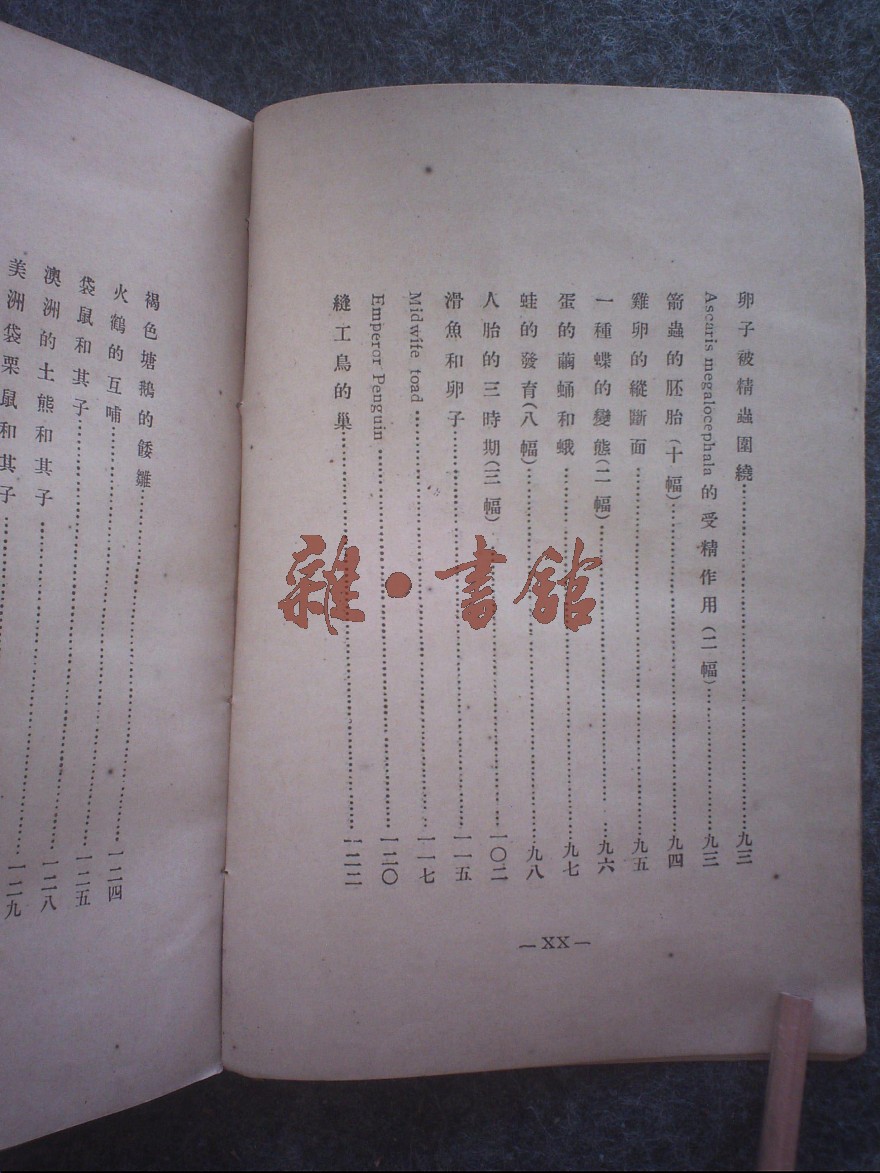 卵子被精蟲圍繞……九三
Ascaris megalocephala 的受精作用(二幅)……九三
箭蟲的胚胎(十幅)……九四
雞卵的縱斷面……九五
一種蝶的變態(二幅)……九六
蛋的繭蛹和蛾……九七
蛙的發育(八幅)……九八
人胎的三時期(三幅)……一〇二
滑魚和卵子……一一五
Midwife toad……一一七
Emperor Penguin……一二〇
縫工鳥的巢……一二二
—XX—
褐色塘鵝的餧雛……一二四
火鶴的互哺……一二五
袋鼠和其子……一二八
澳洲的土熊和其子……一二九
美洲袋栗鼠和其子
雜·書館